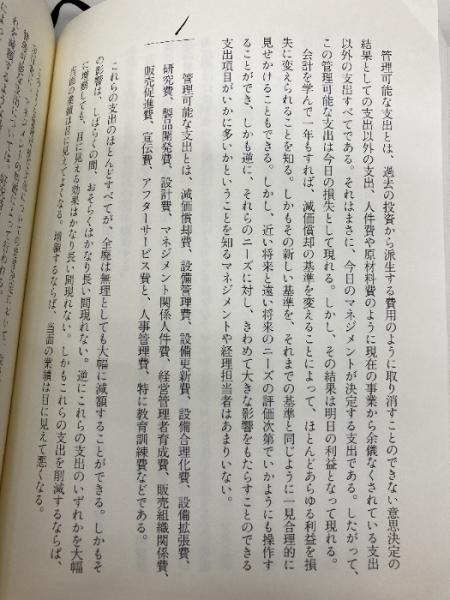 管理可能な支出とは、過去の投資から派生する費用のように取り消すことのできない意思決定の
結果としての支出以外の支出、人件費や原材料費のように現在の事業から余儀なくされている支出
以外の支出すべてである。それはまさに、今日のマネジメントが決定する支出である。したがって、
この管理可能な支出は今日の損失として現れる。しかし、その結果は明日の利益となって現れる。
会計を学んで一年もすれば、減価償却の基準を変えることによって、ほとんどあらゆる利益を損
失に変えられることを知る。しかもその新しい基準を、それまでの基準と同じように一見合理的に
見せかけることもできる。しかし、近い将来と遠い将来のニーズの評価次第でいかようにも操作す
ることができ、しかも逆に、それらのニーズに対し、きわめて大きな影響をもたらすことのできる
支出項目がいかに多いかということを知るマネジメントや経理担当者はあまりいない。
管理可能な支出とは、減価償却費、設備管理費、設備更新費、設備合理化費、設備拡張費、
研究費、製品開発費、設計費、マネジメント関係人件費、経営管理者育成費、販売組織関係費、
販売促進費、宣伝費、アフターサービス費と、人事管理費、特に教育訓練費などである。
これらの支出のほとんどすべてが、全廃は無理としても大幅に減額することができる。しかもそ
の影響は、しばらくの間、おそらくはかなり長い間現れない。逆にこれらの支出のいずれかを大幅
に増額しても、目に見える効果はかなり長い間現れない。しかもこれらの支出を削減するならば、
当面の業績は目に見えてよくなる。増額するならば、当面の業績は目に見えて悪くなる。